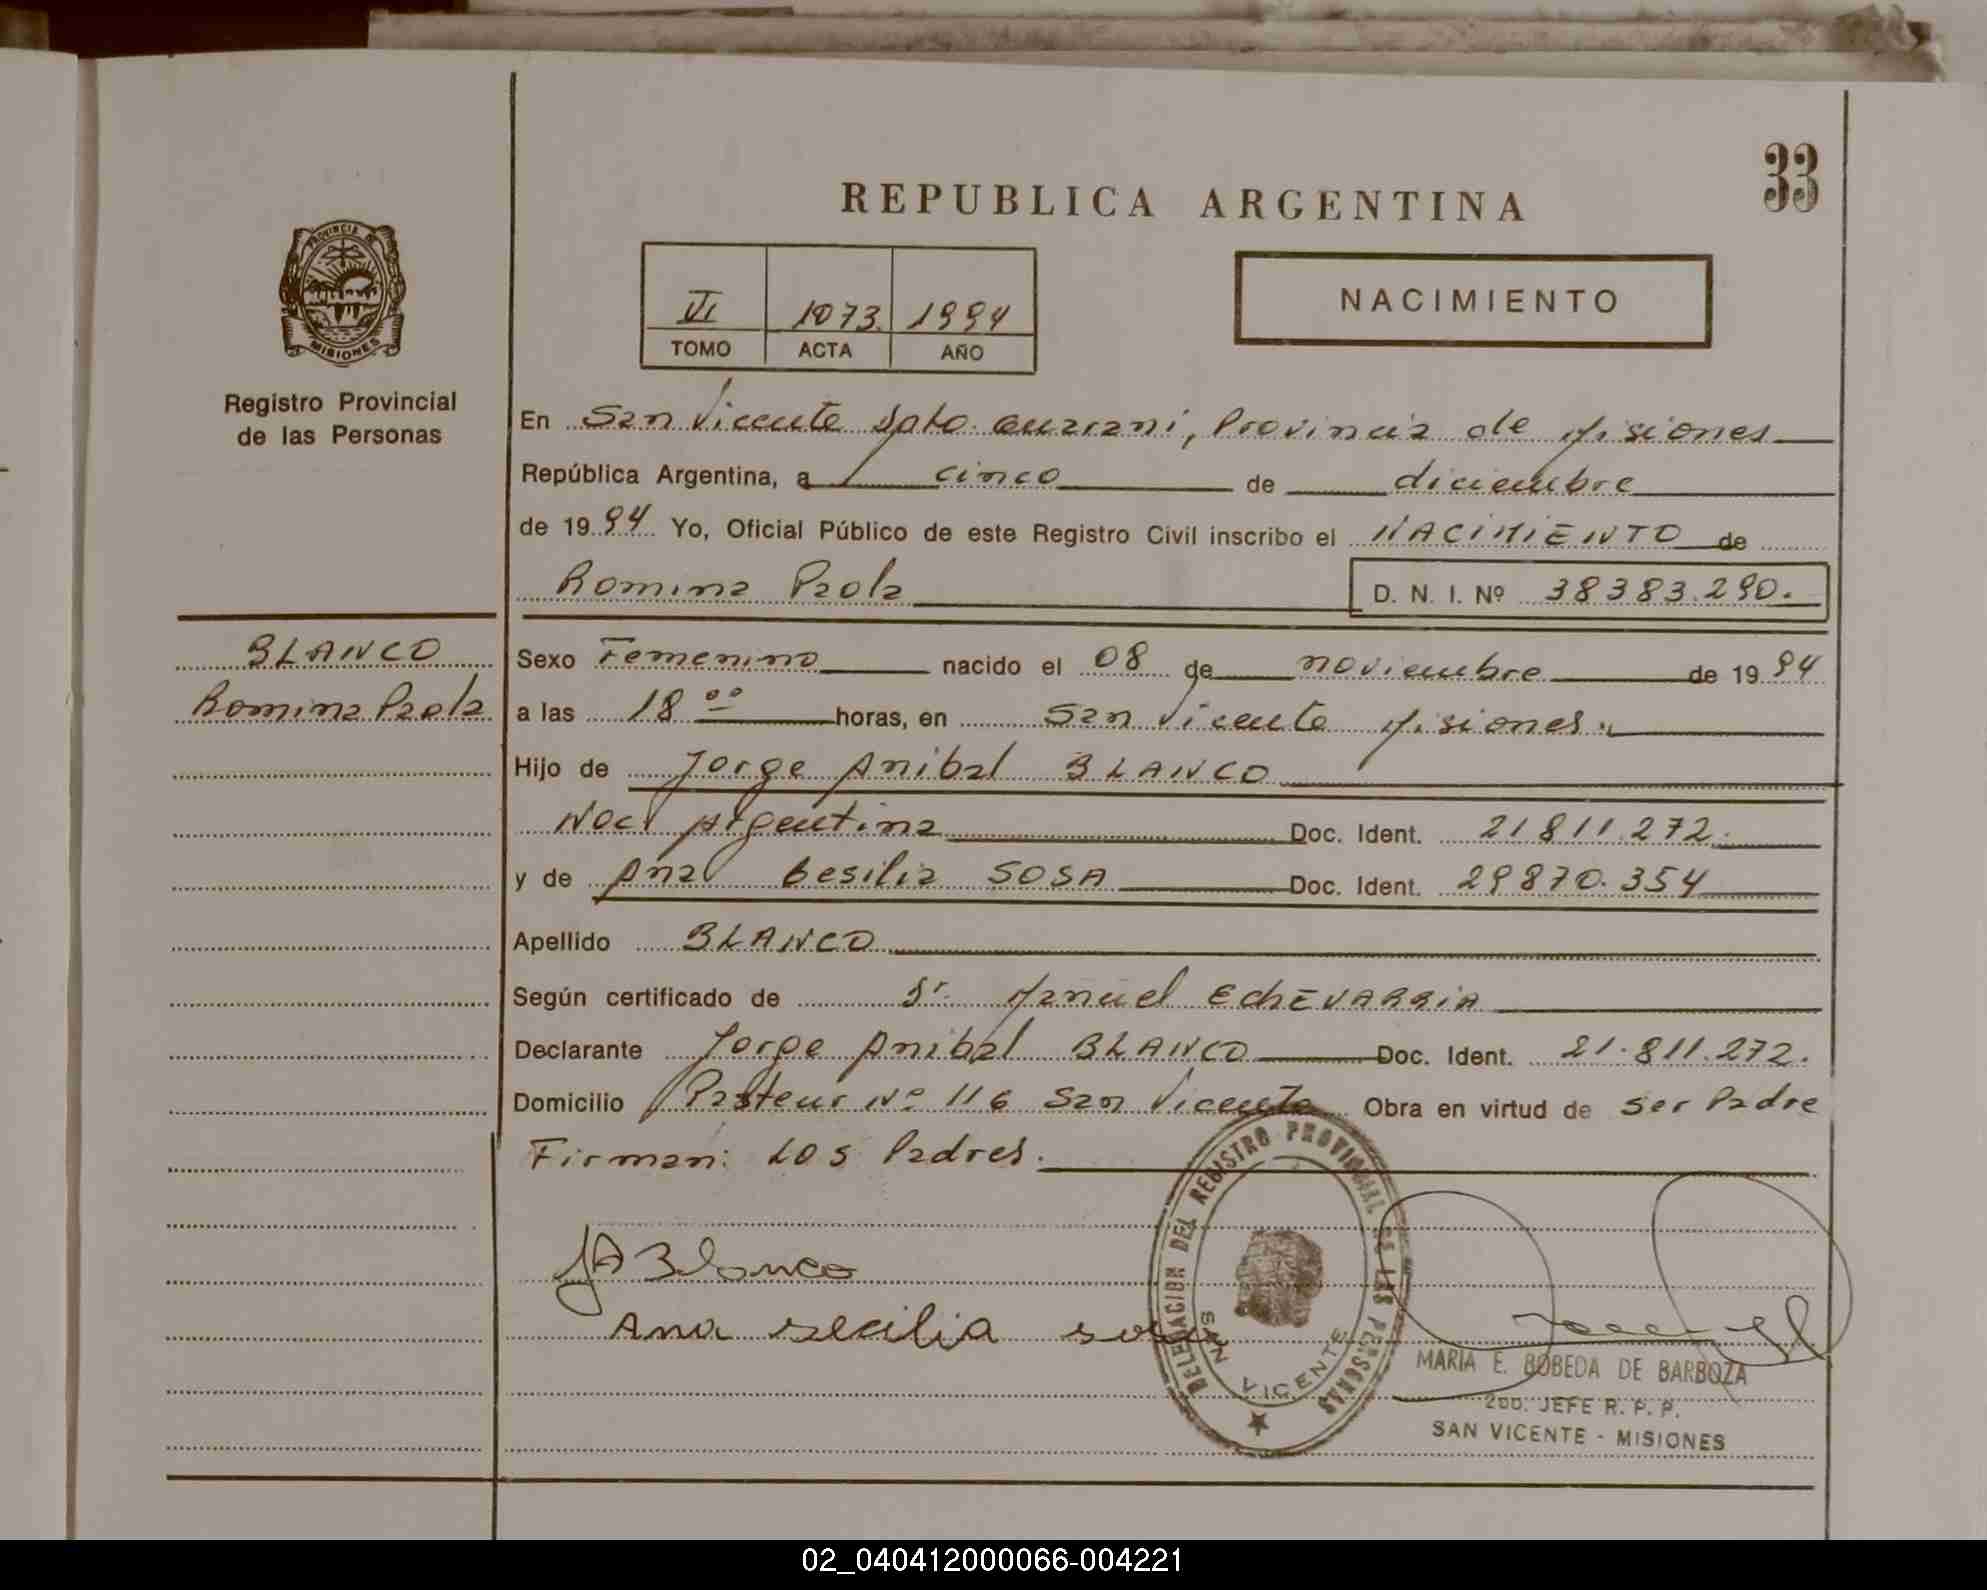 33
REPUBLICA ARGENTINA
PROVINCIA DE
MISIONES
Registro Provincial
de las Personas
VI 1073. 1994
TOMO ACTA AÑO
NACIMIENTO
En San Vicente Dpto. Guarani, Provincia de Misiones
República Argentina, a cinco de diciembre
de 1994 Yo, Oficial Público de este Registro Civil inscribo el NACIMIENTO de
Romina Paola D. N. I. Nº 38383.290.
BLANCO
Romina Paola
Sexo Femenino nacido el 08 de noviembre de 1994
a las 18 ºº horas, en San Vicente Misiones.
Hijo de Jorge Anibal BLANCO
Nac. Argentina Doc. Ident. 21811.272.
y de Ana Cesilia SOSA Doc. Ident. 29870.354
Apellido BLANCO
Según certificado de Dr. Manuel EchEVARRiA
Declarante Jorge Anibal BLANCO Doc. Ident. 21.811.272.
Domicilio Pasteur Nº 116 San Vicente Obra en virtud de ser Padre
Firman: Los Padres.
JA Blanco
Ana secilia sosa
DELEGACION DEL REGISTRO PROVINCIAL DE LAS PERSONAS
SAN VICENTE
MARIA E. BOBEDA DE BARBOZA
2DO. JEFE R. P. P.
SAN VICENTE - MISIONES
02_040412000066-004221